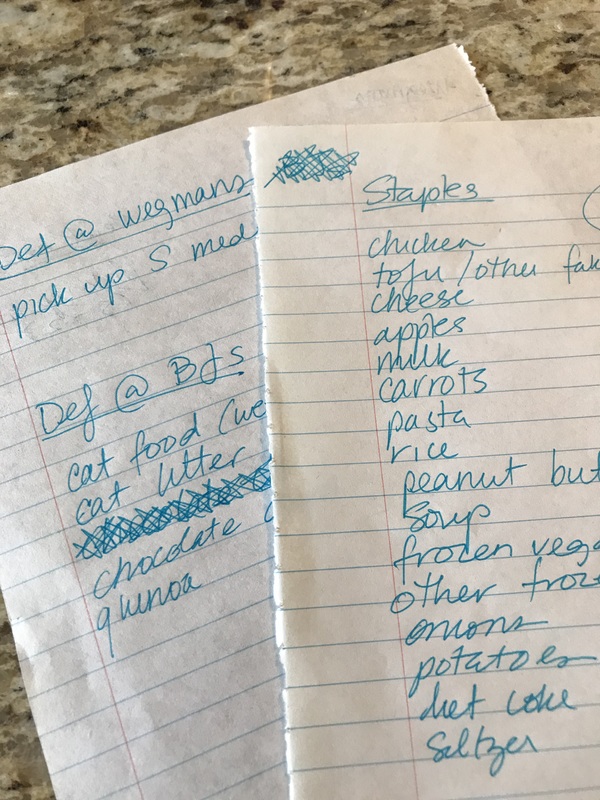 Def @ wegmans
pick up S med
Def @ BJs
cat food (we
cat litter
chocolate
quinoa
Staples
chicken
tofu / other fak
cheese
apples
milk
carrots
pasta
rice
peanut but
soup
frozen vegg
other froze
onions
potatoes
diet coke
seltzer